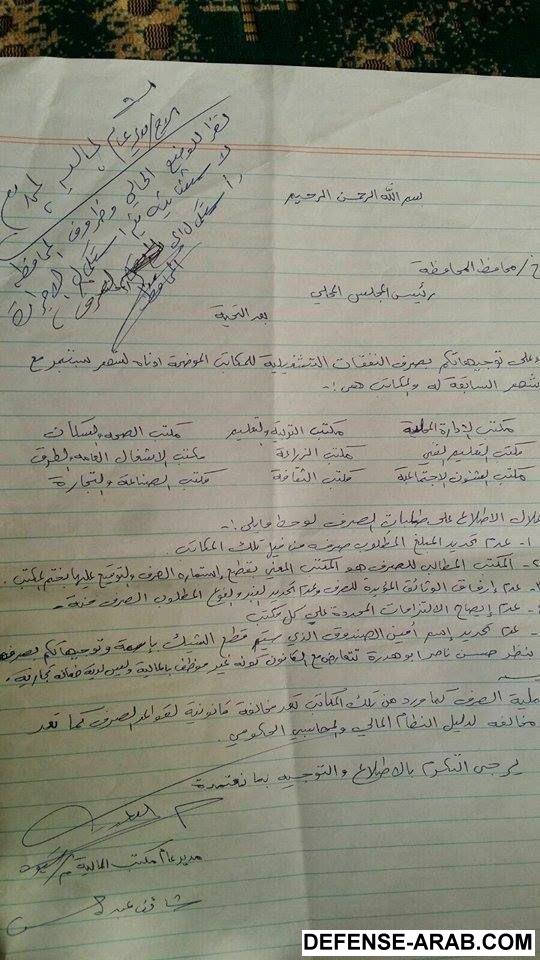 بسم الله الرحمن الرحيم
الاخ/مدير عام مالية
نظرا للوضع الحالي وظروف المحافظة
الاستثنائية يتم استكمال الاجراءات
المحافظ
خ/محافظ المحافظة
رئيس المجلس المحلي
بعد التحية
على توجيهاتكم بصرف النفقات التشغيلية للمكاتب الموضحة ادناه لشهر سبتمبر مع
لشهر السابقة له والمكاتب هي :-
مكتب الإدارة المحلية مكتب التربية والتعليم مكتب الصحه والسكان
مكتب التعليم الفني مكتب الزراعة مكتب الاشغال العامه والطرق
مكتب الشئون الاجتماعية مكتب الثقافة مكتب الصناعة والتجارة
خلال الاطلاع على طلبات الصرف لوحظ مايلي :-
١- عدم تحديد المبلغ المطلوب صرفه من قبل تلك المكاتب .
٢- المكتب المطالب للصرف هو المكتب المعني بقطع إستماره الصرف والتوقيع عليها بختم المكتب .
عدم إرفاق الوثائق المؤيدة للصرف وعدم تحديد البند والنوع المطلوب الصرف منة -
- عدم إيضاح الالتزامات المحددة على كل مكتب
- عدم تحديد إسم أمين الصندوق الذي سيتم قطع الشيك بإسمة وتوجيهاتكم بصرفها
بنظر حسن ناصر ابوهدرة تتعارض مع القانون كونه غير موظف بالمالية وليس لديه ضمانه تجارية .
عملية الصرف كما ورد من تلك المكاتب تعد مخالفة قانونية لقواعد الصرف كما تعد
مخالفه لدليل النظام المالي والمحاسبي الحكومي .
يرجى التكرم بالاطلاع والتوجيه بما نعتمدة
مدير عام مكتب المالية م/
DEFENSE-ARAB.COM